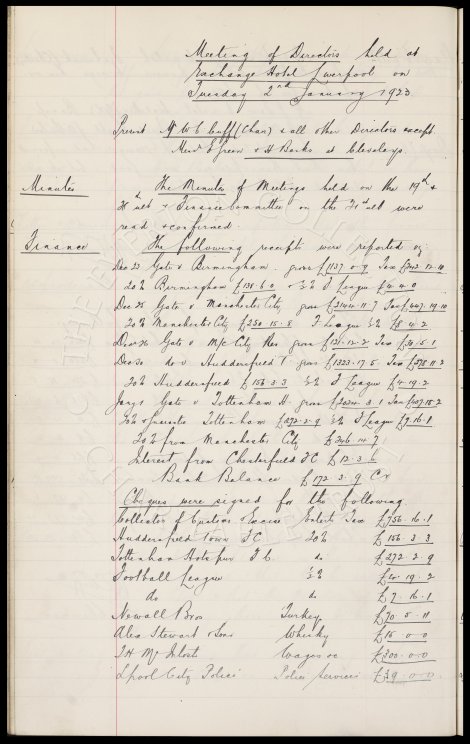 Meeting of Directors held at
Exchange Hotel Liverpool on
Tuesday 2nd January 1923
Present Mr W C Cuff (Chan) & all other Directors except
Messrs E Green & H Banks at
Minutes
The Minutes of Meetings held on the 19th &
ult & Finance Committee on the ult were
read & confirmed.
Finance
The following receipts were reported viz
Dec 23 Gate v Birmingham. gross £1137.0.9 Tax £243.12.10
20% Birmingham £131.6.0 ½% F League £4.4.0
Dec 25 Gate v Manchester City gross £2144.11.7 Tax £447.19.10
20% Manchester City £250.15.8 F League ½% £8.4.2
Dec 26 Gate v M/c City Res gross £131.12.2 Tax £36.5.1
Dec 30 do v Huddersfield T gross £1323.17.5 Tax £278.11.2
20% Huddersfield £156.3.3 ½% F League £4.19.2
Jany 1 Gate v Tottenham H. gross £2034.3.1 Tax £427.15.2
20% & guarantee Tottenham £272.2.9 ½% F League £7.16.1
20% from Manchester City £206.14.7
Interest from Chesterfield FC £12.3.6
Bank Balance £172.3.9 Cr
Cheques were signed for the following
Collector of Customs & Excise Enterts Tax £756.16.1
Huddersfield Town F.C. 20% £156.3.3
Tottenham Hotspur F.C. do £272.2.9
Football League ½% £4.19.2
do do £7.16.1
Newall Bros Turkey £70.5.11
Alex Stewart & Sons Whisky £15.0.0
T.H. McIntosh Wages &c £300.0.0
Lpool City Police Police Services £39.0.0